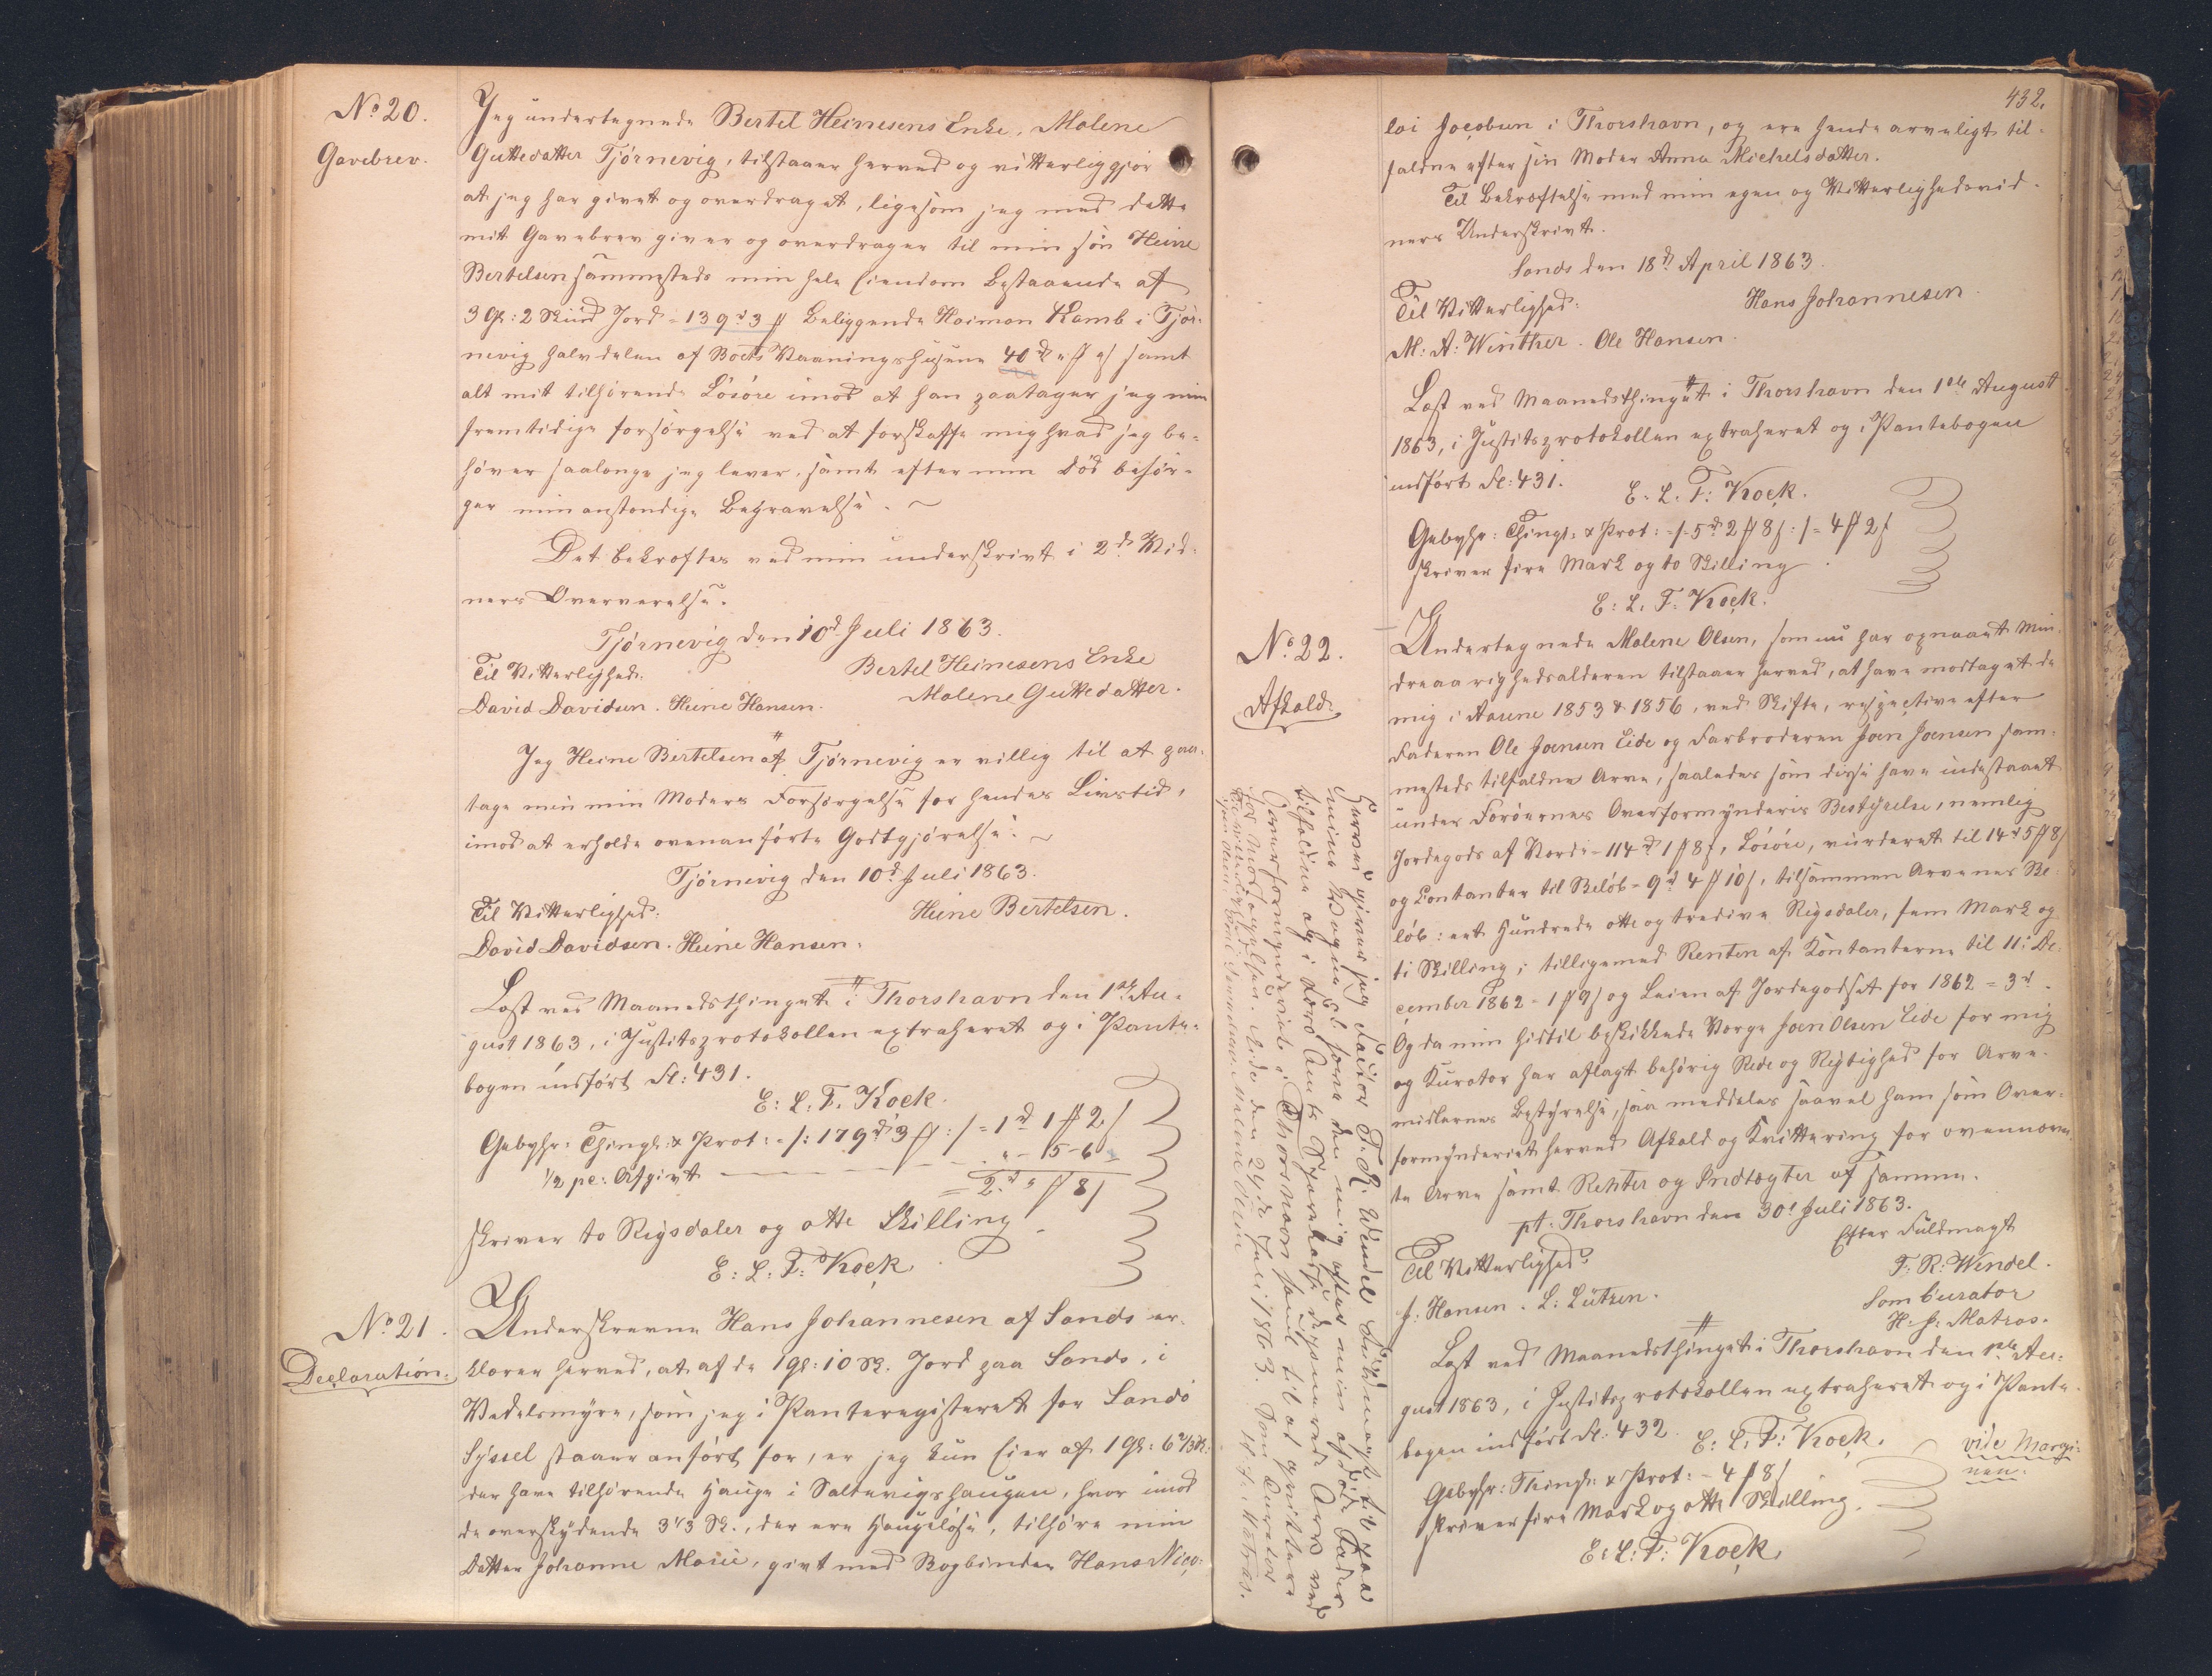 No 20.
Gavebrev.
Jeg undertegnede Bertel Heinesens Enke, Malene
Guttedatter Tjörnevig, tilstaaer herved og vitterliggjör
at jeg har givet og overdraget, ligesom jeg med dette
mit Gavebrev giver og overdrager til min sön Heine
Bertelsen sammesteds min hele Eiendom bestaaende af
3 Gl: 2 Skind Jord = 139 rd 3 ß beliggende Heimon Kamb i Tjör-
nevig halvdelen af Boets Vaaningshusene 40 rd " ß " s samt
alt mit tilhörende Lösöre imod at han paatager sig min
fremtidige forsörgelse ved at forskaffe mig hvad jeg be-
höver saalenge jeg lever, samt efter min Död besör-
ger min anstendige Begravelse. ~
Det bekreftes ved min underskrivt i 2de Vid-
ners Oververelse.
Tjörnevig den 10d Juli 1863.
Til Vitterlighed: Bertel Heinesens Enke
David Davidsen. Heine Hansen. Malene Guttedatter.
Jeg Heine Bertelsen af Tjörnevig er villig til at paa-
tage min min Moders Forsörgelse for hendes Livstid,
imod at erholde ovenanförte Godtgjörelse. ~
Tjörnevig den 10d Juli 1863.
Til Vitterlighed: Heine Bertelsen.
David Davidsen. Heine Hansen.
Lest ved Maanedsthinget i Thorshavn den 1ste Au-
gust 1863, i Justitsprotokollen extraheret og i Pante-
bogen indfört Fl: 431.
E: L: F. Kock.
Gebyhr: Thingl: & Prot: =/: 179 rd 3 ß :/ = 1 rd 1 ß 2 s
1/2 pc: Afgivt " - 5 - 6
= 2 rd " ß 8 s
skriver to Rigsdaler og otte Skilling
E: L: F: Kock.
No 21.
Declaration.
Underskrevne Hans Johannesen af Sands er-
klærer herved, at af de 1 Gl: 10 Sk. Jord paa Sands, i
Vedelsmyre, som jeg i Panteregisteret for Sandö
Syssel staaer anfört for, er jeg kun Eier af 1 Gl: 6 2/3 Sk.
der have tilhörende Hauge i Saltevigshaugen, hvor imod
de overskydende 3 1/3 Sk., der ere Haugelöse, tilhöre min
Datter Johanne Marie, givt med Bogbinder Hans Nico-
432.
lai Jacobsen i Thorshavn, og ere hende arveligt til-
faldne efter sin Moder Anna Michelsdatter.
Til Bekreftelse med min egen og Vitterlighedsvid-
ners Underskrivt.
Sands den 18d April 1863.
Til Vitterlighed: Hans Johannesen.
M: A: Winther. Ole Hansen.
Lest ved Maanedsthinget i Thorshavn den 1ste August
1863, i Justitsprotokollen extraheret og i Pantebogen
indfört Fl: 431. E. L. F: Kock.
Gebyhr: Thingl: & Prot: =/- 5 rd 2 ß 8 s :/ = 4 ß 2 s
skriver fire Mark og to Skilling.
E: L. F: Kock.
No 22.
Afkald.
Undertegnede Malene Olsen, som nu har opnaaet Min-
dreaarighedsalderen tilstaaer herved, at have modtaget de
mig i Aarene 1853 & 1856, ved Skifte, respective efter
Faderen Ole Joensen Eide og Farbroderen Joen Joensen sam-
mesteds tilfaldne Arve, saaledes som disse have indestaaet
under Færöernes Overformynderis Bestyrelse, nemlig
Jordegods af Verdi = 114 rd 1 ß 8 s, Lösöre, vurderet til 14 rd 5 ß 8 s
og Contanter til Belöb = 9 rd 4 ß 10 s, tilsammen Arvenes Be-
löb: eet Hundrede otte og tredive Rigsdaler, fem Mark og
ti Skilling; tilligemed Renten af Kontanterne til 11: De-
cember 1862 = 1 ß 9 s og Leien af Jordegodset for 1862 = 3 rd.
Og da min hidtil beskikkede Værge Joen Olsen Eide for mig
og Kurator har aflagt behörig Rede og Rigtighed for Arve-
midlernes Bestyrelse, saa meddeles saavel ham som Over-
formynderiet herved Afkald og Kvittering for ovennævn-
te Arve samt Renter og Indtægter af samme.
pt. Thorshavn den 30t Juli 1863.
Efter Fuldmagt
Til Vitterlighed: F: R: Wendel.
J: Hansen. L: Lützen. Som Curator
H: J: Matras.
Lest ved Maanedsthinget i Thorshavn den 1ste Au-
gust 1863, i Justitsprotokollen extraheret og i Pante-
bogen indfört Fl: 432. E: L: F: Kock.
vide Margi-
nen.
Gebyhr: Thingl: & Prot: = 4 ß 8 s
skriver fire Mark og otte Skilling.
E: L: F: Kock.
Herved giver jeg Factor F. R. Wendel Fuldmagt til paa
mine Vegne at
tilfaldne Arv
Overformynderiet i Thorshavn samt til at qvittere
for Modtagelsen. Eide den 24de Juli 1863. Som Curator
H: J: Matras.
Malene Olsen